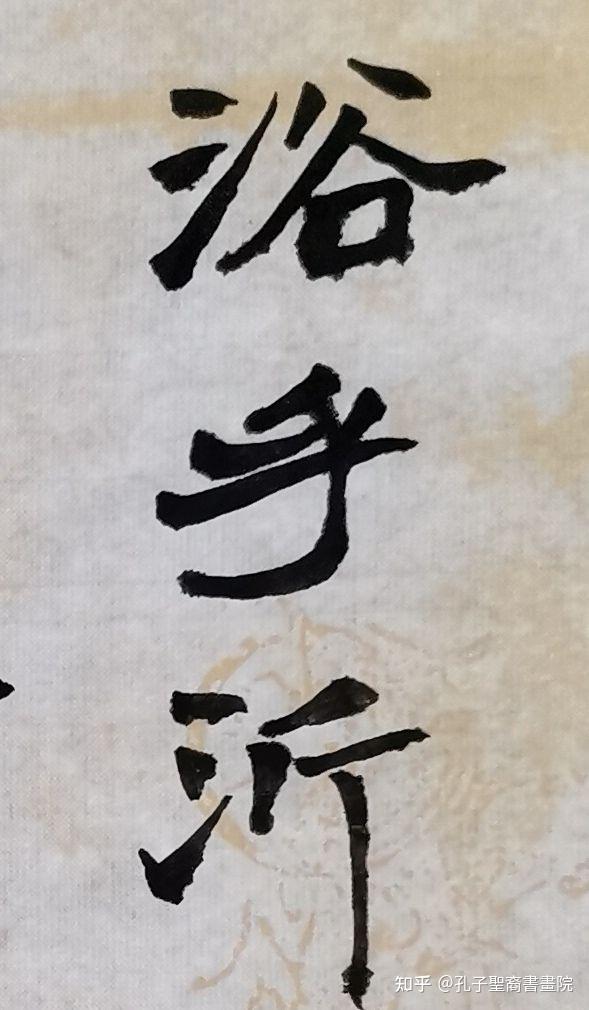 浴乎沂
知乎 @孔子聖裔書畫院